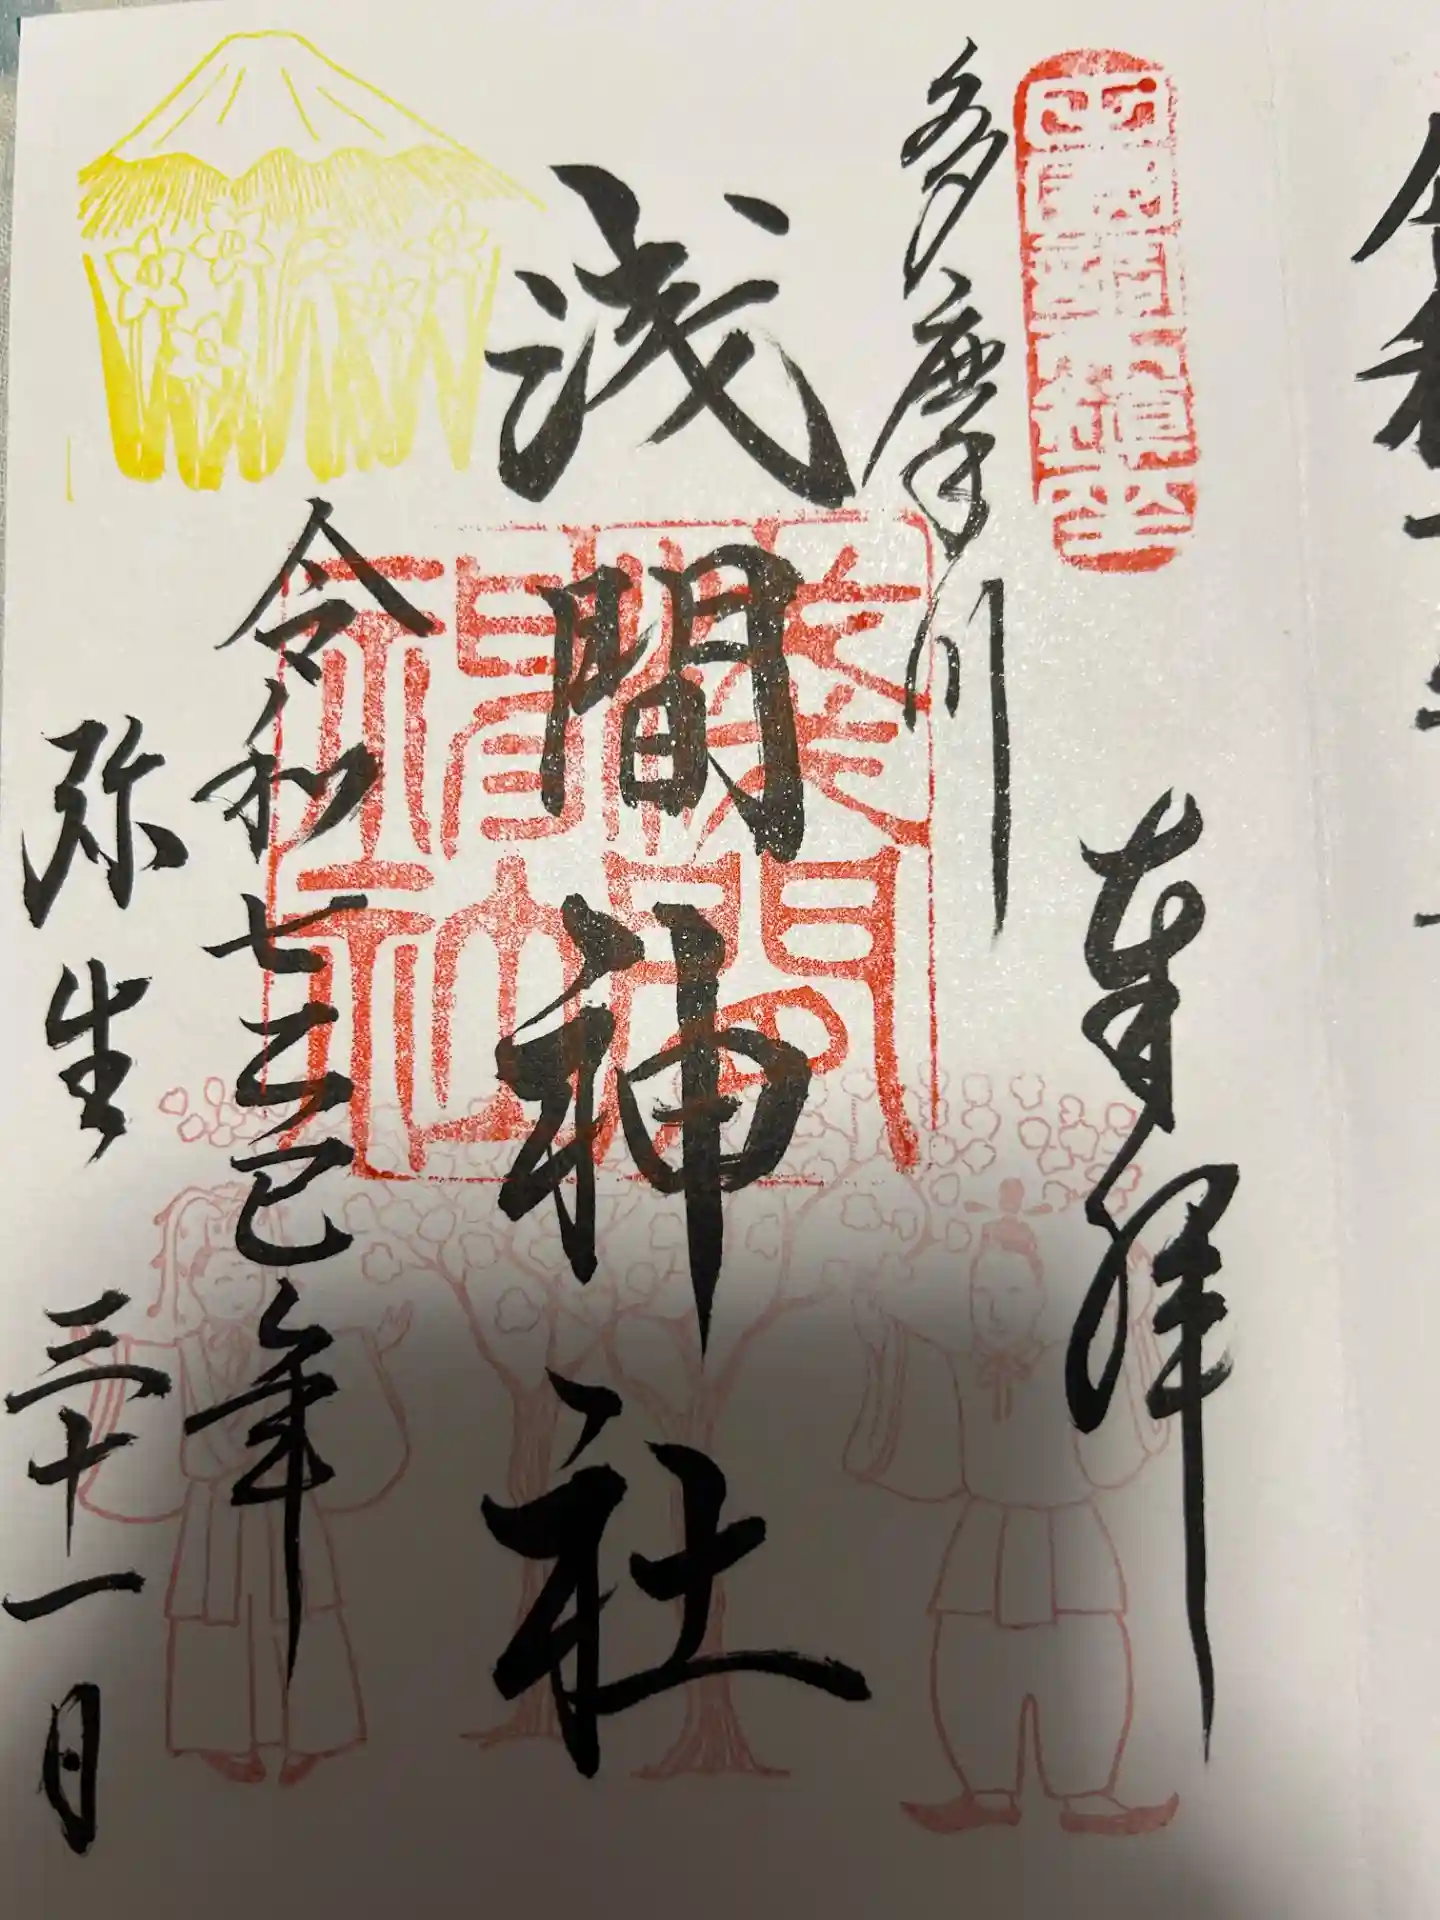 奉拝
多摩川
浅間神社
令和七乙巳年
弥生 三十一日